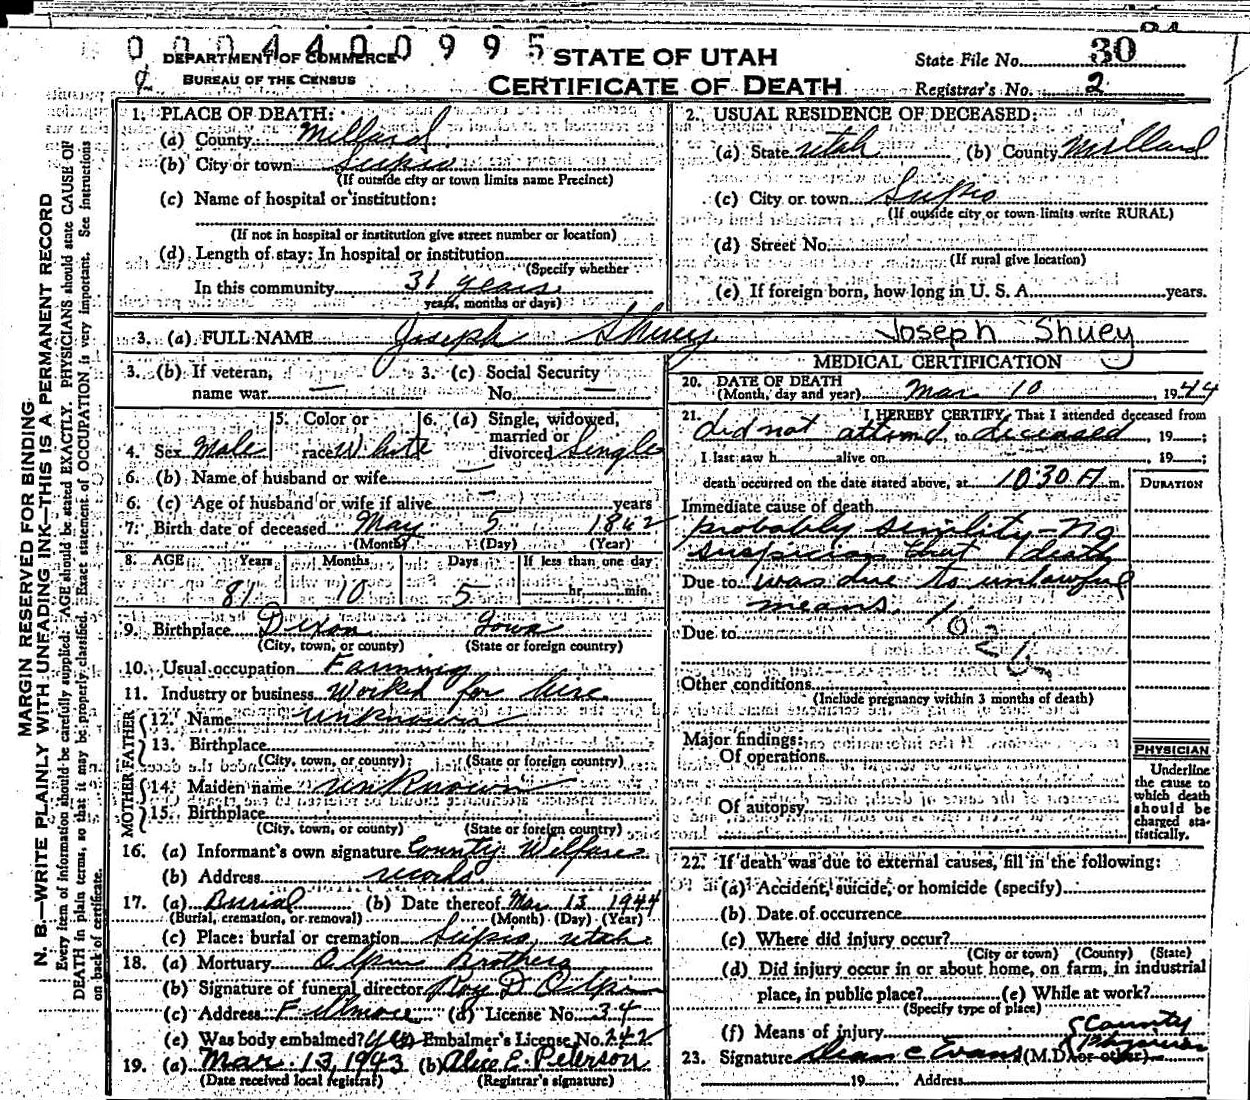 0 0 0 4 4 0 0 9 9 5
DEPARTMENT OF COMMERCE
BUREAU OF THE CENSUS
STATE OF UTAH
CERTIFICATE OF DEATH
State File No. 30
Registrar's No. 2
MARGIN RESERVED FOR BINDING
N. B.—WRITE PLAINLY WITH UNFADING INK—THIS IS A PERMANENT RECORD
Every item of information should be carefully supplied. AGE should be stated EXACTLY. PHYSICIANS should state CAUSE OF
DEATH in plain terms, so that it may be properly classified. Exact statement of OCCUPATION is very important. See instructions
on back of certificate.
1. PLACE OF DEATH:
(a) County Millard
(b) City or town Scipio
(If outside city or town limits name Precinct)
(c) Name of hospital or institution:
(If not in hospital or institution give street number or location)
(d) Length of stay: In hospital or institution
(Specify whether
In this community 31 years
years, months or days)
2. USUAL RESIDENCE OF DECEASED:
(a) State Utah (b) County Millard
(c) City or town Scipio
(If outside city or town limits write RURAL)
(d) Street No.
(If rural give location)
(e) If foreign born, how long in U. S. A. years.
3. (a) FULL NAME Joseph Shuey Joseph Shuey
3. (b) If veteran, name war — 3. (c) Social Security No. —
4. Sex Male 5. Color or race White 6. (a) Single, widowed, married or divorced Single
6. (b) Name of husband or wife —
6. (c) Age of husband or wife if alive — years
7. Birth date of deceased May 5 1862
(Month) (Day) (Year)
8. AGE Years Months Days If less than one day
81 10 5 hr. min.
9. Birthplace Dixon Iowa
(City, town, or county) (State or foreign country)
10. Usual occupation Farming
11. Industry or business Worked for hire
FATHER
12. Name unknown
13. Birthplace
(City, town, or county) (State or foreign country)
MOTHER
14. Maiden name unknown
15. Birthplace
(City, town, or county) (State or foreign country)
16. (a) Informant's own signature County Welfare
(b) Address records
17. (a) Burial (b) Date thereof Mar 13 1944
(Burial, cremation, or removal) (Month) (Day) (Year)
(c) Place: burial or cremation Scipio, Utah
18. (a) Mortuary Olpin Brothers
(b) Signature of funeral director Roy D Olpin
(c) Address Fillmore (d) License No. 34
(e) Was body embalmed? yes Embalmer's License No. 242
19. (a) Mar. 13, 1943 (b) Alice E. Peterson
(Date received local registrar) (Registrar's signature)
MEDICAL CERTIFICATION
20. DATE OF DEATH
(Month, day and year) Mar 10, 1944
21. I HEREBY CERTIFY, That I attended deceased from
did not attend, to deceased, 19 ;
I last saw h alive on , 19 ;
death occurred on the date stated above, at 10:30 A m.
DURATION
Immediate cause of death
probably senility - No
suspicion that death
Due to was due to unlawful
means.
Due to
Other conditions
(Include pregnancy within 3 months of death)
Major findings:
Of operations
Of autopsy
PHYSICIAN
Underline
the cause to
which death
should be
charged sta-
tistically.
22. If death was due to external causes, fill in the following:
(a) Accident, suicide, or homicide (specify)
(b) Date of occurrence
(c) Where did injury occur?
(City or town) (County) (State)
(d) Did injury occur in or about home, on farm, in industrial
place, in public place? (e) While at work?
(Specify type of place)
(f) Means of injury
County
Physician
23. Signature Evans (M.D. or other)
19 Address